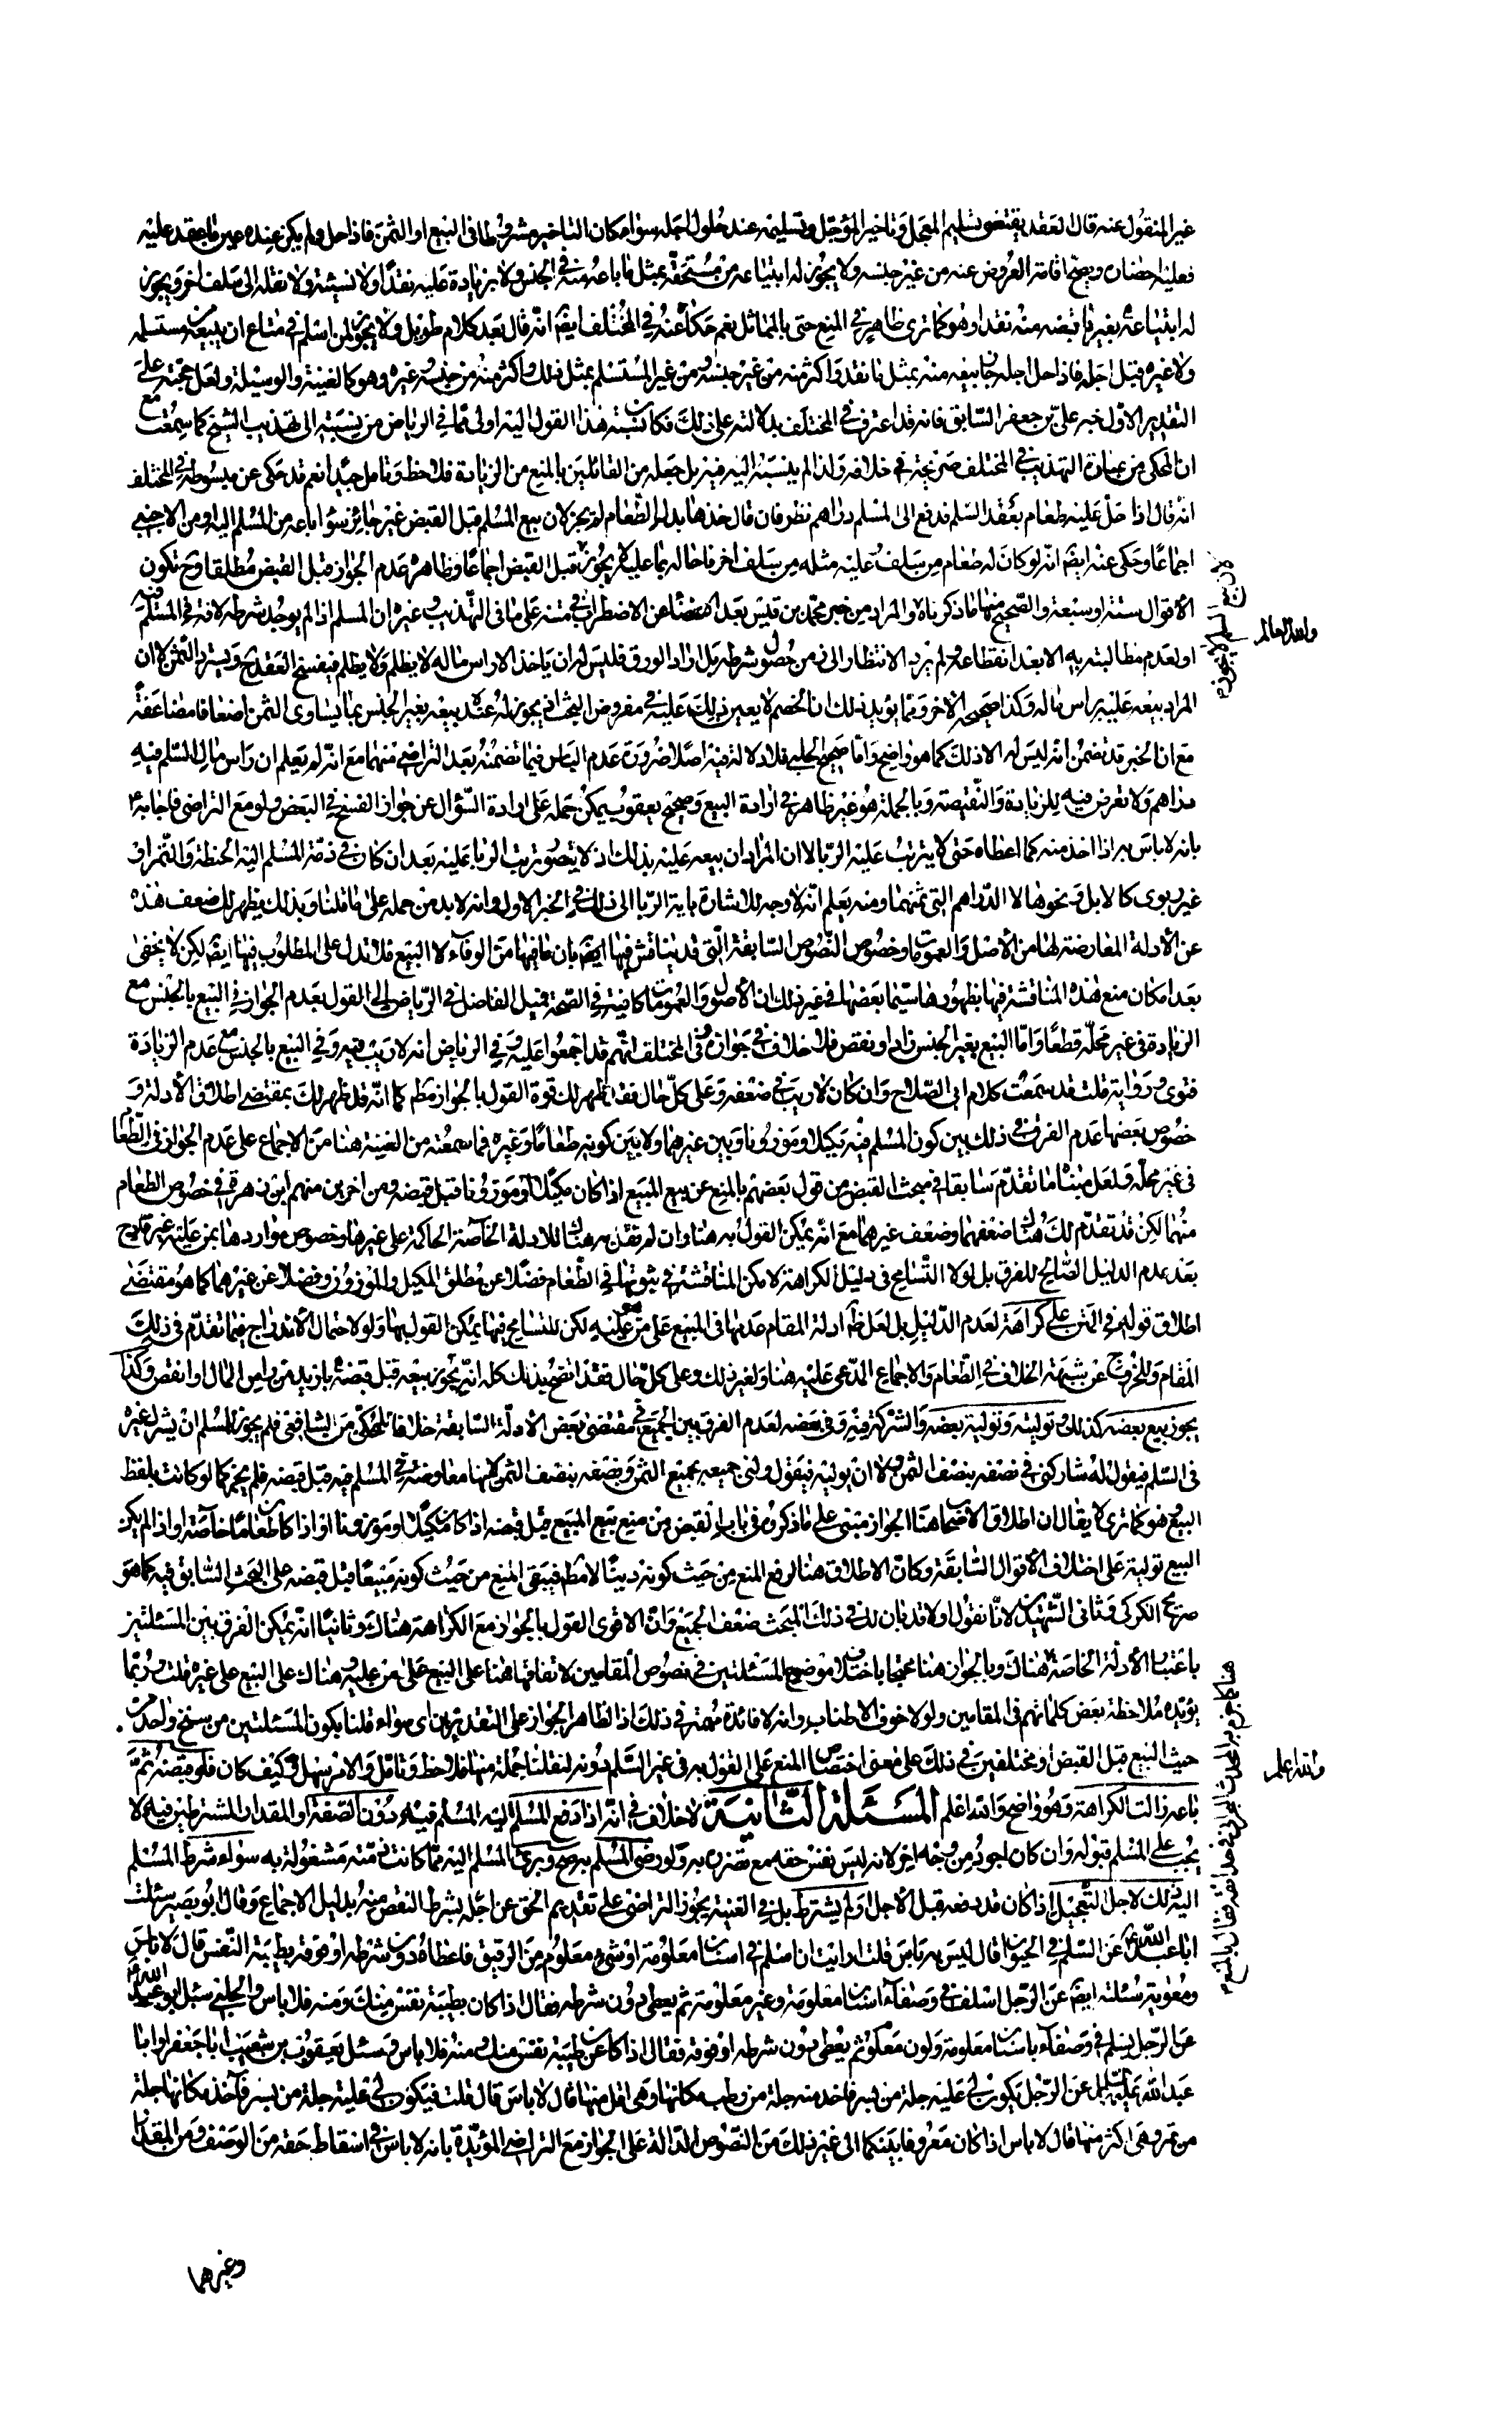 غير المنقول عنه قال العقد يقتضى تسليم المعجل وتاخير المؤجل وتسليمه عند حلول اجله سواء كان التاخير مشروطا فى المبيع او الثمن فاذا حل ولم يكن عنده عين ما عقد عليه
فعليه احضاره ويصح اقامة العروض عنه من غير جنسه ولا يجوز له ابتياعه من مستحقه بمثل ما باعه منه فى الجنس ولا بزيادة عليه نقدا ولا نسيئة ولا نقله الى سلف اخر ويجوز
له ابتياعه بغير ما قبضه منه نقدا وهو كما ترى ظاهر فى المنع حتى بالمماثل نعم حكى عنه فى المختلف ايضم انه قال بعد كلام طويل ولا يجوز لمن اسلم فى متاع ان يبيعه من مستسلمه
ولا غيره قبل اجله فاذا حل اجله جاز بيعه منه بمثل ما نقد واكثر منه من غير جنسه ومن غير المستسلم بمثل ذلك واكثر منه من جنسه وغيره وهو كما لغنية والوسيلة ولعل حجته على
التقدير الاول خبر على بن جعفر السابق فانه قد اعترف فى المختلف بدلالته على ذلك فكان نسبة هذا القول اليه اولى مما فى الرياض من نسبته الى تهذيب الشيخ كما سمعت مع
ان المحكى من عبارة التهذيب فى المختلف صريحة فى خلافه ولذا لم ينسبه اليه فيه بل جعله من القائلين بالمنع من الزيادة فلاحظ وتامل جيدا نعم قد حكى عن مبسوطه فى المختلف
انه قال اذا حل عليه طعام بعقد السلم فدفع الى المسلم دراهم نظر فان قال خذها بدل الطعام لم يجز لان بيع المسلم قبل القبض غير جائز سواء باعه من المسلم اليه او من الاجنبى
اجماعا وحكى عنه ايضم انه لو كان له طعام من سلف وعليه مثله من سلف اخر فاحاله بما عليه لم يجز قبل القبض اجماعا وظاهره عدم الجواز قبل القبض مطلقا وح تكون
الاقوال ستة او سبعة والصحيح منها ما ذكرناه والمراد من خبر محمد بن قيس بعد الاغضاء عن الاضطراب فى متنه على ما فى التهذيب وغيره ان المسلم اذا لم يوجد شرطه لافة فى المسلم فيه
او لعدم مطالبته به الا بعد انقطاعه ولم يرد الانتظار الى زمن حصول شرطه بل اراد الورق فليس له ان ياخذ الا راس ماله لا يظلم ولا يظلم فيفسخ العقد ح ويسترد الثمن لا ان
المراد بيعه عليه براس ماله وكذا صحيحه الاخر ومما يؤيد ذلك ان الخصم لا يعين ذلك عليه فى مفروض البحث اذ يجوز له عنده بيعه بغير الجنس بما يساوى الثمن اضعافا مضاعفة
مع ان الخبر قد تضمن انه ليس له الا ذلك كما هو واضح واما صحيح الحلبى فلا دلالة فيه اصلا ضرورة عدم الباس فيما تضمنه بعد التراضى منهما مع انه لم يعلم ان راس مال السلم فيه
دراهم ولا تعرض فيه للزيادة والنقيصة وبالجملة هو غير ظاهر فى ارادة البيع وصحيح يعقوب يمكن حمله على ارادة السؤال عن جواز الفسخ فى البعض ولو مع التراضى فاجابه ع
بانه لا باس به اذا اخذ منه كما اعطاه حتى لا يترتب عليه الربا لا ان المراد ان بيعه عليه بذلك اذ لا يتصور ترتب الربا عليه بعد ان كان فى ذمة المسلم اليه الحنطة والتمر او
غير ربوى كالابل ونحوها لا الدراهم التى ثمنها ومنه يعلم انه لا وجه للاشارة باية الربا الى ذلك فى الخبر الاول وانه لا بد من حمله على ما قلنا وبذلك يظهر لك ضعف هذه
عن الادلة المعارضة لها من الاصل والعمومات وخصوص النصوص السابقة التى قد يناقش فيها ايضم بان ما فيها من الوفاء لا البيع فلا تدل على المطلوب فيها ايضم لكن لا يخفى
بعد امكان منع هذه المناقشة فيها بظهورها سيما بعضها فى غير ذلك ان الاصل والعمومات كافية فى الصحة فميل الفاضل فى الرياض الى القول بعدم الجواز فى البيع بالجنس مع
الزيادة فى غير محله قطعا واما البيع بغير الجنس زاد او نقص فلا خلاف فى جوازه وفى المختلف انهم قد اجمعوا عليه وفى الرياض انه لا ريب فيه وفى البيع بالجنس مع عدم الزيادة
فتوى ورواية قلت قد سمعت كلام ابى الصلاح وان كان لا ريب فى ضعفه وعلى كل حال فقد ظهر لك قوة القول بالجواز مطم كما انه قد ظهر لك بمقتضى اطلاق الادلة و
خصوص بعضها عدم الفرق فى ذلك بين كون المسلم فيه مكيلا وموزونا وبين غيرهما ولا بين كونه طعاما وغيره فما سمعته من الغنية هنا من الاجماع على عدم الجواز فى الطعام
فى غير محله ولعل مبناه ما تقدم سابقا فى مبحث القبض من قول بعضهم بالمنع عن بيع المبيع اذا كان مكيلا او موزونا قبل قبضه ومن اخرين منهم ابن زهرة فى خصوص الطعام
منهما لكن قد تقدم لك هناك ضعفهما وضعف غيرهما مع انه يمكن القول به هنا وان لم نقل به هناك للادلة الخاصة الحاكمة على غيرها وخصوص مواردها بمن عليه غير قادح
بعد عدم الدليل الصالح للفرق بل لولا التسامح فى دليل الكراهة لامكن المناقشة فى ثبوتها فى الطعام فضلا عن مطلق المكيل والموزون وفضلا عن غيرهما كما هو مقتضى
اطلاق قوله فى المتن على كراهة لعدم الدليل بل لعل ظم ادلة المقام عدمها فى المبيع على من هو عليه لكن للتسامح فيها يمكن القول بها ولو لاحتمال الاندراج فيما تقدم فى ذلك
المقام وللخروج عن شبهة الخلاف فى الطعام والاجماع المدعى عليه هنا ولغير ذلك وعلى كل حال فقد اتضح بذلك كله انه يجوز بيعه قبل قبضه بازيد من راس المال او انقص وكذا
يجوز بيع بعضه كذلك وتوليته وتولية بعضه والشركة فيه وفى بعضه لعدم الفرق بين الجميع فى مقتضى بعض الادلة السابقة خلافا للمحكى من الشافعى فلم يجوز للمسلم ان يشرك غيره
فى السلم فيقول له شاركنى فى نصفه بنصف الثمن ولا ان يوليه فيقول ولنى جميعه بجميع الثمن ونصفه بنصف الثمن لانها معاوضة فى المسلم فيه قبل قبضه فلم يجز كما لو كانت بلفظ
البيع وهو كما ترى لا يقال ان اطلاق الاصحاب هنا الجواز مبنى على ما ذكروه فى باب القبض من منع بيع المبيع قبل قبضه اذا كان مكيلا او موزونا او اذا كان طعاما خاصة او اذا لم يكن
البيع تولية على اختلاف الاقوال السابقة وكان الاطلاق هنا لرفع المنع من حيث كونه دينا لا مطم فيبقى المنع من حيث كونه مبيعا قبل قبضه على البحث السابق فيه كما هو
صريح الكركى وثانى الشهيدين لانا نقول اولا قد بان لك فى ذلك المبحث ضعف الجميع وان الاقوى القول بالجواز مع الكراهة هناك وثانيا انه يمكن الفرق بين المسئلتين
باعتبار الادلة الخاصة هناك وبالجواز هنا محتجا باختلاف موضوع المسئلتين فى نصوص المقامين لاتفاقها هنا على البيع على من عليه وهناك على البيع على غيره قلت وربما
يؤيده ملاحظة بعض كلماتهم فى المقامين ولولا خوف الاطناب وانه لا فائدة مهمة فى ذلك اذ الظاهر الجواز على التقديرين اى سواء قلنا بكون المسئلتين من سنخ واحد من
حيث البيع قبل القبض او مختلفين فى ذلك على معنى اختصاص المنع على القول به فى غير السلم دونه لنقلنا جملة منها فلاحظ وتامل والامر سهل وكيف كان فلو قبضه ثم
باعه زالت الكراهة وهو واضح والله اعلم المسئلة الثانية لا خلاف فى انه اذا دفع المسلم اليه المسلم فيه دون الصفة او المقدار المشترطين فيه لا
يجب على المسلم قبوله وان كان اجود من وجه اخر لانه ليس نفس حقه مع تضرره به ولو رضى المسلم به صح وبرئ المسلم اليه مما كانت ذمته مشغولة به سواء شرط المسلم
اليه ذلك لاجل التعجيل اذا كان قد دفعه قبل الاجل او لم يشترط بل فى الغنية يجوز التراضى على تقديم الحق عن اجله بشرط النقص منه بدليل الاجماع وقال ابو بصير سئلت
ابا عبد الله ع عن السلم فى الحيوان قال ليس به باس قلت ارايت ان اسلم فى اسنان معلومة او شىء معلوم من الرقيق فاعطاه دون شرطه او فوقه بطيبة النفس قال لا باس
ومعوية سئلته ايضم عن الرجل اسلف فى وصفاء اسنان معلومة وغير معلومة ثم يعطى دون شرطه فقال اذا كان بطيبة نفس منك ومنه فلا باس والحلبى سئل ابو عبد الله ع
عن الرجل يسلم فى وصفاء باسنان معلومة ولون معلوم ثم يعطى دون شرطه او فوقه فقال اذا كان عن طيبة نفس منك ومنه فلا باس وسئل يعقوب بن شعيب ابا جعفر او ابا
عبد الله عليه السلام عن الرجل يكون لى عليه جلة من بسر فاخذ منه جلة من رطب مكانها وهى اقل منها قال لا باس قال قلت فيكون لى عليه جلة من بسر فآخذ مكانها جلة
من تمر وهى اكثر منها قال لا باس اذا كان معروفا بينكما الى غير ذلك من النصوص الدالة على الجواز مع التراضى المؤيدة بانه لا باس فى اسقاط حقه من الوصف ومن المقدار
وغيرهما
لان بيع السلم لا يجوز م
والله العالم
هنا كما جزم به المحدث البحرانى فى حدائقه فقال بالمنع م
والله اعلم